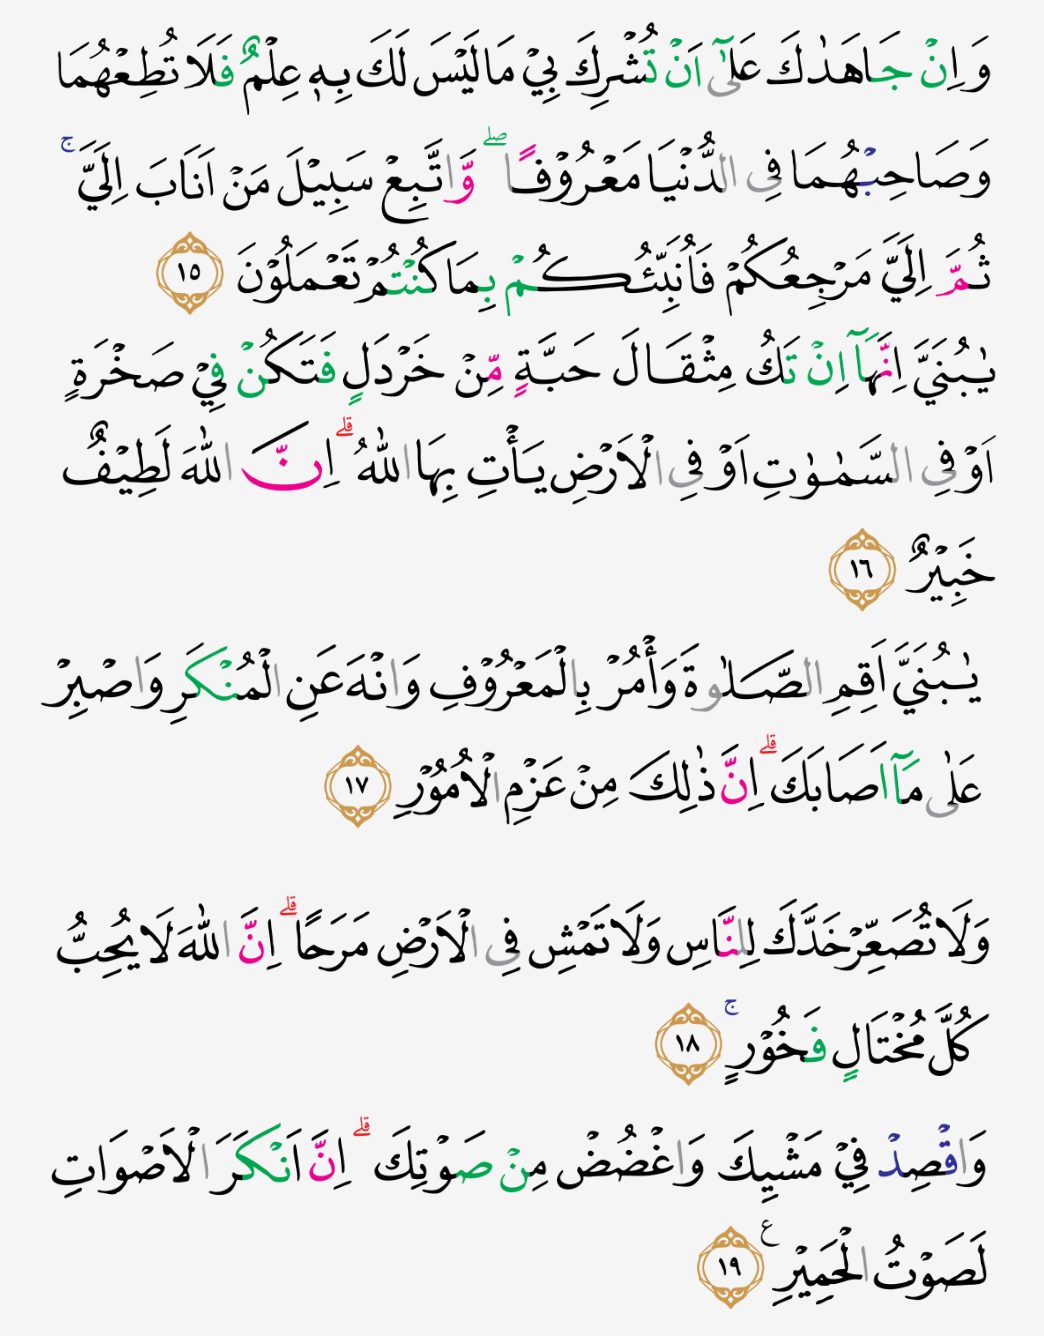 وَاِنْ جَاهَدٰكَ عَلٰٓى اَنْ تُشْرِكَ بِيْ مَا لَيْسَ لَكَ بِهٖ عِلْمٌ فَلَا تُطِعْهُمَا
وَصَاحِبْهُمَا فِى الدُّنْيَا مَعْرُوْفًا ۖ وَّاتَّبِعْ سَبِيْلَ مَنْ اَنَابَ اِلَيَّ ۚ
ثُمَّ اِلَيَّ مَرْجِعُكُمْ فَاُنَبِّئُكُمْ بِمَا كُنْتُمْ تَعْمَلُوْنَ ١٥
يٰبُنَيَّ اِنَّهَآ اِنْ تَكُ مِثْقَالَ حَبَّةٍ مِّنْ خَرْدَلٍ فَتَكُنْ فِيْ صَخْرَةٍ
اَوْ فِى السَّمٰوٰتِ اَوْ فِى الْاَرْضِ يَأْتِ بِهَا اللّٰهُ ۗ اِنَّ اللّٰهَ لَطِيْفٌ
خَبِيْرٌ ١٦
يٰبُنَيَّ اَقِمِ الصَّلٰوةَ وَأْمُرْ بِالْمَعْرُوْفِ وَانْهَ عَنِ الْمُنْكَرِ وَاصْبِرْ
عَلٰى مَآ اَصَابَكَ ۗ اِنَّ ذٰلِكَ مِنْ عَزْمِ الْاُمُوْرِ ١٧
وَلَا تُصَعِّرْ خَدَّكَ لِلنَّاسِ وَلَا تَمْشِ فِى الْاَرْضِ مَرَحًا ۗ اِنَّ اللّٰهَ لَا يُحِبُّ
كُلَّ مُخْتَالٍ فَخُوْرٍ ۚ ١٨
وَاقْصِدْ فِيْ مَشْيِكَ وَاغْضُضْ مِنْ صَوْتِكَ ۗ اِنَّ اَنْكَرَ الْاَصْوَاتِ
لَصَوْتُ الْحَمِيْرِ ع ١٩